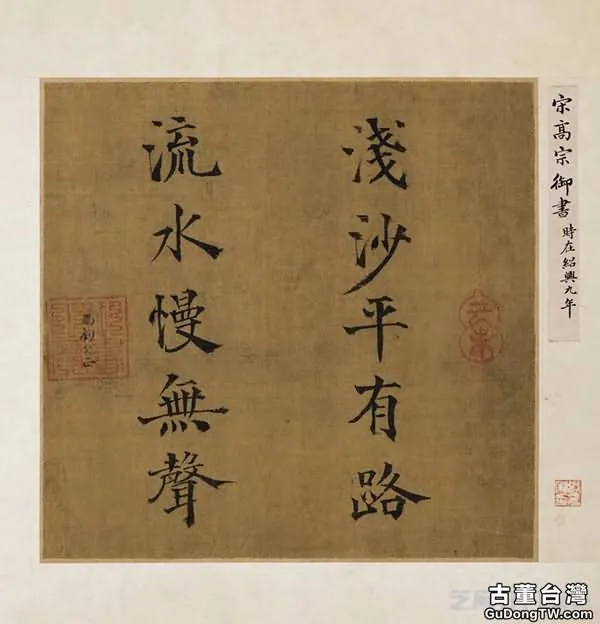 宋高宗御書 時在紹興九年
淺沙平有路
流水慢無聲
古董台灣
GuDongTW.com